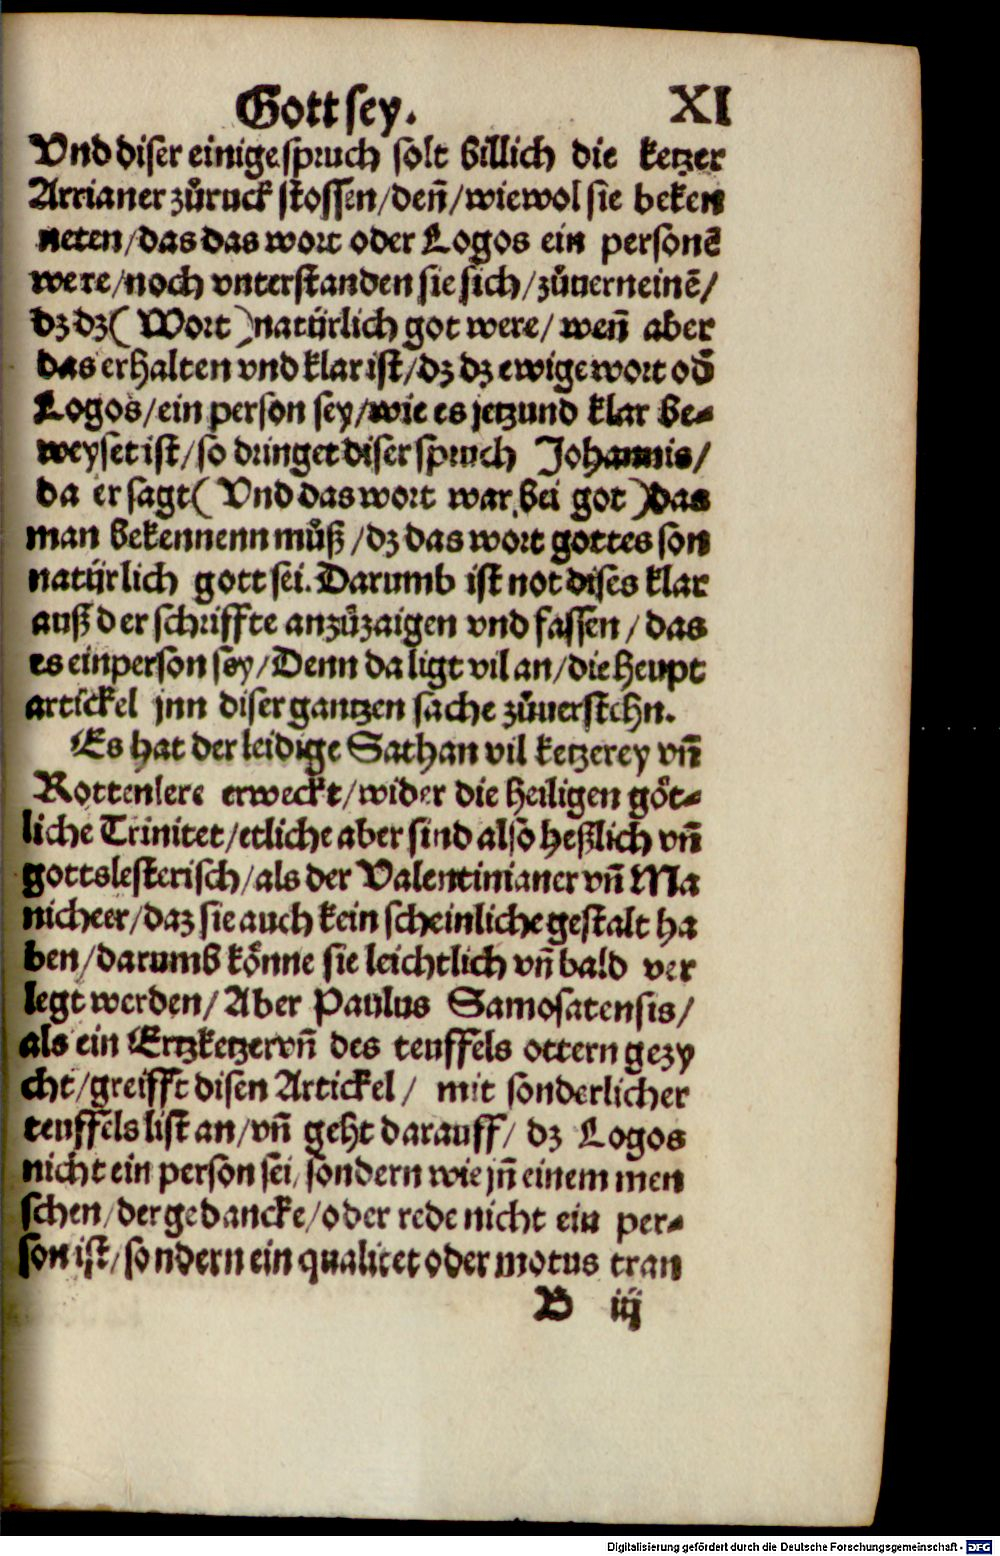 Gott sey. XI
Vnd diser einige spruch solt billich die ketzer
Arrianer zůruck stossen/deñ/wiewol sie beken
neten/das das wort oder Logos ein personẽ
were/noch vnterstanden sie sich/zůuerneinẽ/
dz dz (Wort) natürlich got were/ weñ aber
das erhalten vnd klar ist/dz dz ewige wort od̃
Logos/ein person sey/wie es jetzund klar be-
weyset ist/so dringet diser spruch Johannis/
da er sagt (Vnd das wort war bei got) das
man bekennenn můß/dz das wort gottes son
natürlich gott sei. Darumb ist not dises klar
auß der schriffte anzůzaigen vnd fassen/das
es ein person sey/Denn da ligt vil an/die heupt
artickel jnn diser gantzen sache zůuerstehn.
Es hat der leidige Sathan vil ketzerey vñ
Rottenlere erweckt/wider die heiligen göt-
liche Trinitet/etliche aber sind also heßlich vñ
gottslesterisch/als der Valentinianer vñ Ma
nicheer/daz sie auch kein scheinliche gestalt ha
ben/darumb könne sie leichtlich vñ bald ver
legt werden/Aber Paulus Samosatensis/
als ein Ertzketzer vñ des teuffels ottern gezy
cht/greifft disen Artickel/ mit sonderlicher
teuffels list an/vñ geht darauff/ dz Logos
nicht ein person sei/sondern wie jñ einem men
schen/der gedancke/oder rede nicht ein per-
son ist/sondern ein qualitet oder motus tran
B iij
Digitalisierung gefördert durch die Deutsche Forschungsgemeinschaft - DFG